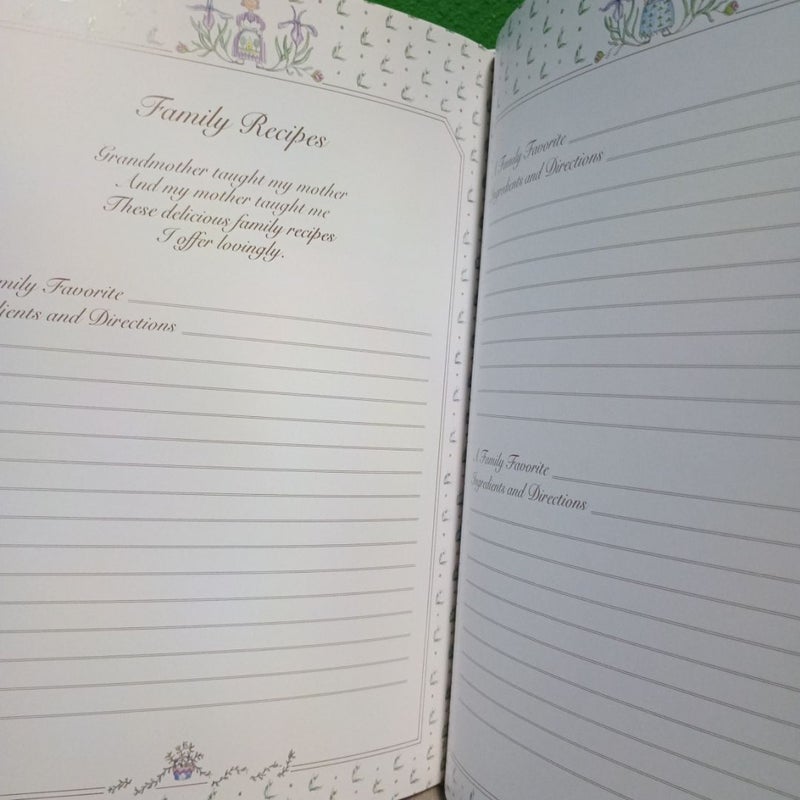 Family Recipes
Grandmother taught my mother
And my mother taught me
These delicious family recipes
I offer lovingly.
mily Favorite
ients and Directions
A Family Favorite
Ingredients and Directions
A Family Favorite
Ingredients and Directions